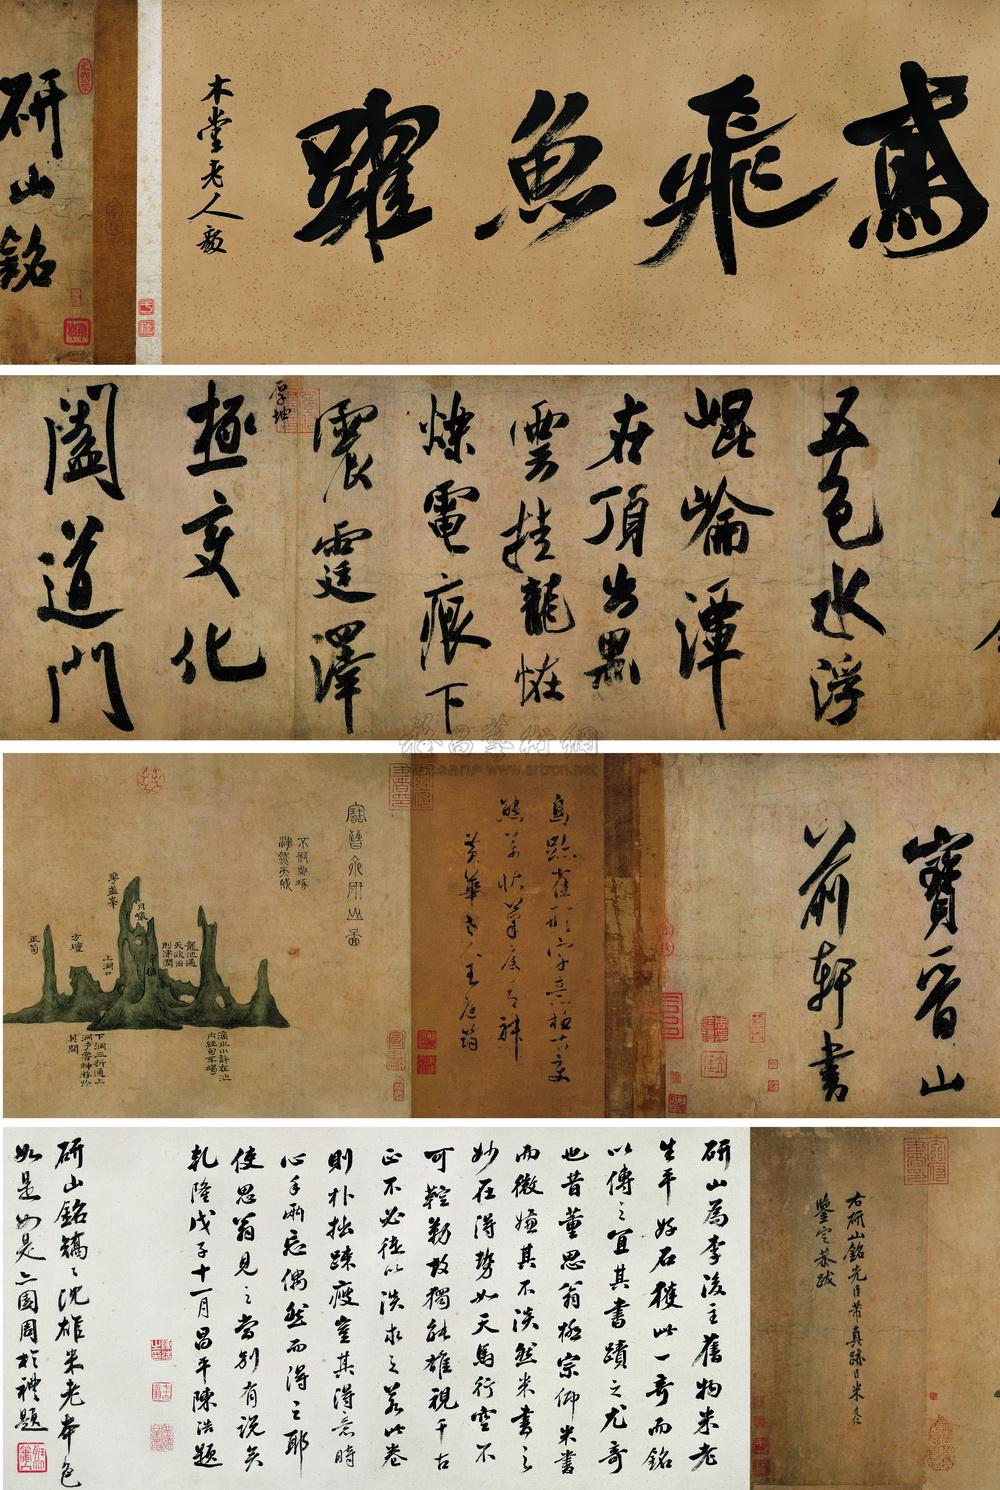 鳶飛魚躍
木堂老人毅
研山銘
五色水浮
崐崘潭
在頂出黑
雲挂龍怪
爍電痕下
震霆澤
厚坤
極變化
闔道門
寶晉山
前軒書
鳥跡雀形字意極古變
態萬狀筆底有神
黃華老人王庭筠
寶晉齋研山圖
不假雕琢
渾然天成
龍池遇
天欲雨
則津潤
月巖
翠巒
華蓋峯
上洞口
方壇
玉筍
滴水小許在池
內經旬不竭
下洞三折通上
洞予嘗神游於
其間
右研山銘先臣芾真跡臣米友仁
鑒定恭跋
研山為李後主舊物米老
生平好石獲此一奇而銘
以傳之宜其書蹟之尤奇
也昔董思翁極宗仰米書
而微嫌其不淡然米書之
妙在得勢如天馬行空不
可鞚勒故獨能雄視千古
正不必徒以淡求之若此卷
則朴拙疎瘦豈其得意時
心手兩忘偶然而得之耶
使思翁見之當別有說矣
乾隆戊子十一月昌平陳浩題
研山銘鐫之沈雄米老本色
如是如是亡國周於禮題
www.artron.net